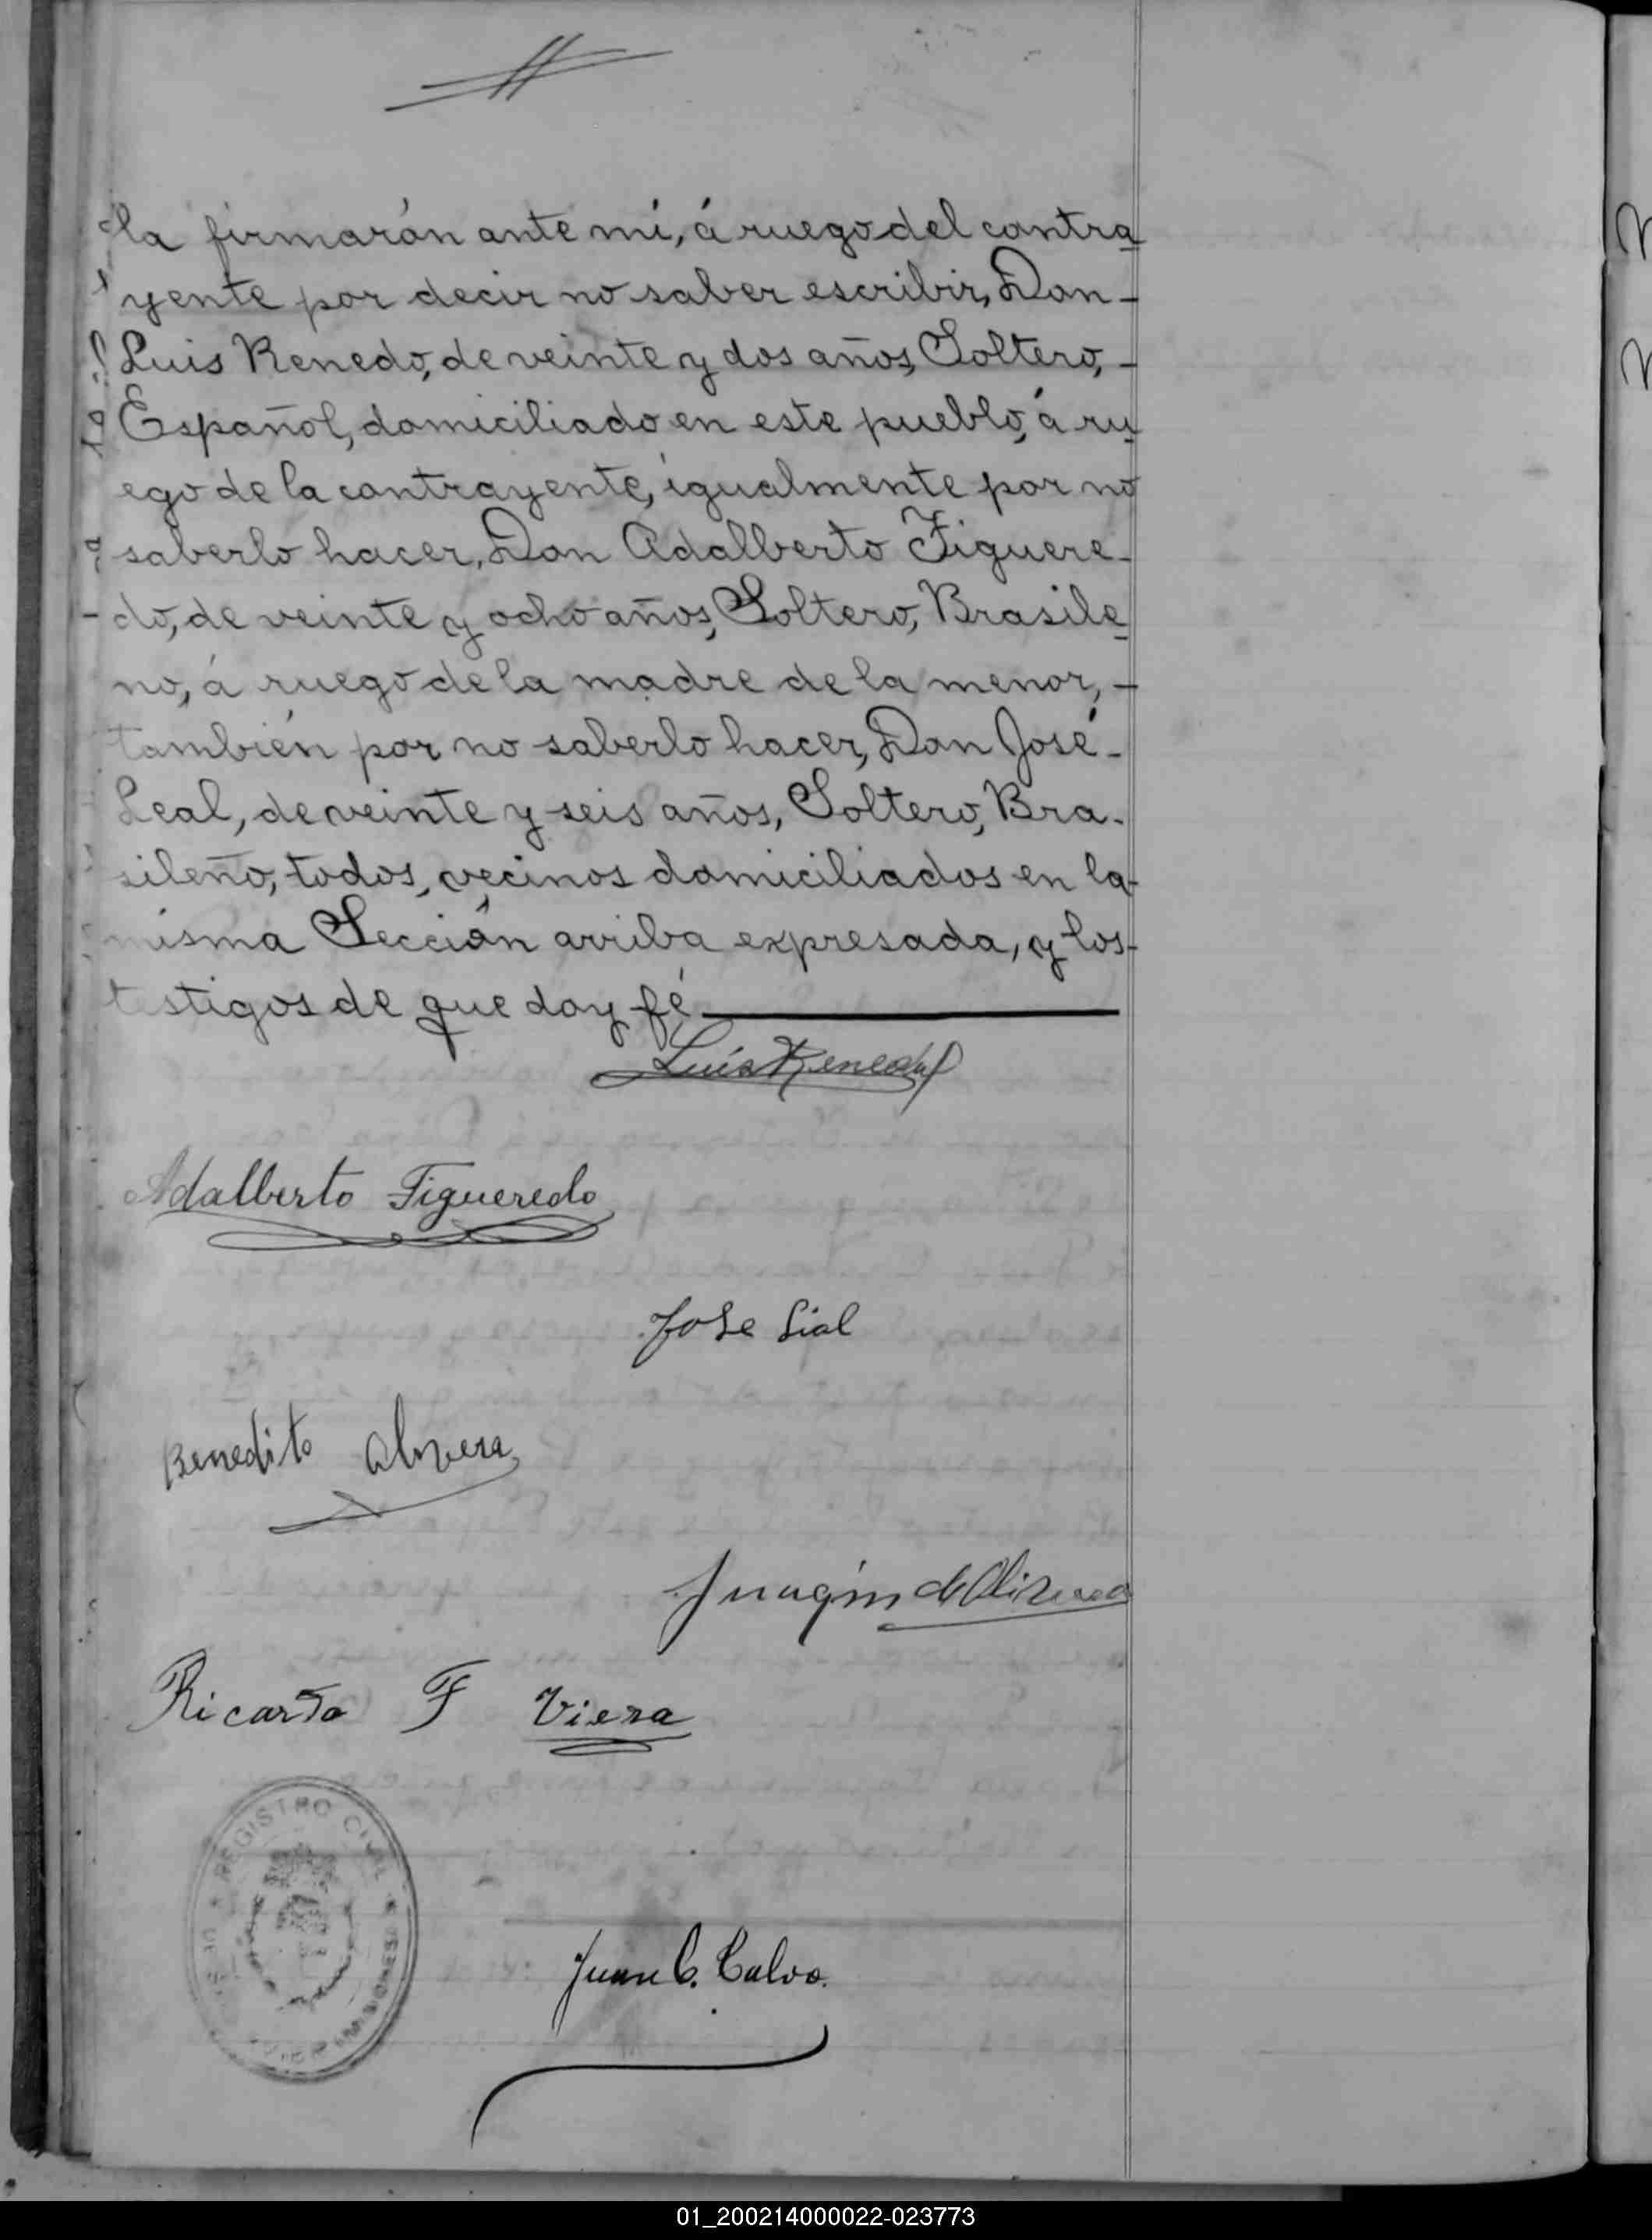 la firmarón ante mí, á ruego del contra
yente por decir no saber escribir, Don -
Luis Renedo, de veinte y dos años, Soltero, -
Español, domiciliado en este pueblo, á ru
ego de la contrayente, igualmente por no
saberlo hacer, Don Adalberto Figuere-
do, de veinte y ocho años, Soltero, Brasile
no, á ruego de la madre de la menor, -
también por no saberlo hacer, Don José -
Leal, de veinte y seis años, Soltero, Bra-
sileño, todos, vecinos domiciliados en la -
misma Sección arriba expresada, y los -
testigos de que doy fé
Luis Renedo
Adalberto Figueredo
Jose Lial
Benedito Olivera
Juaqin de Olivera
Ricardo F Viera
REGISTRO CIVIL
MISIONES
Juan C. Calvo.
01_200214000022-023773